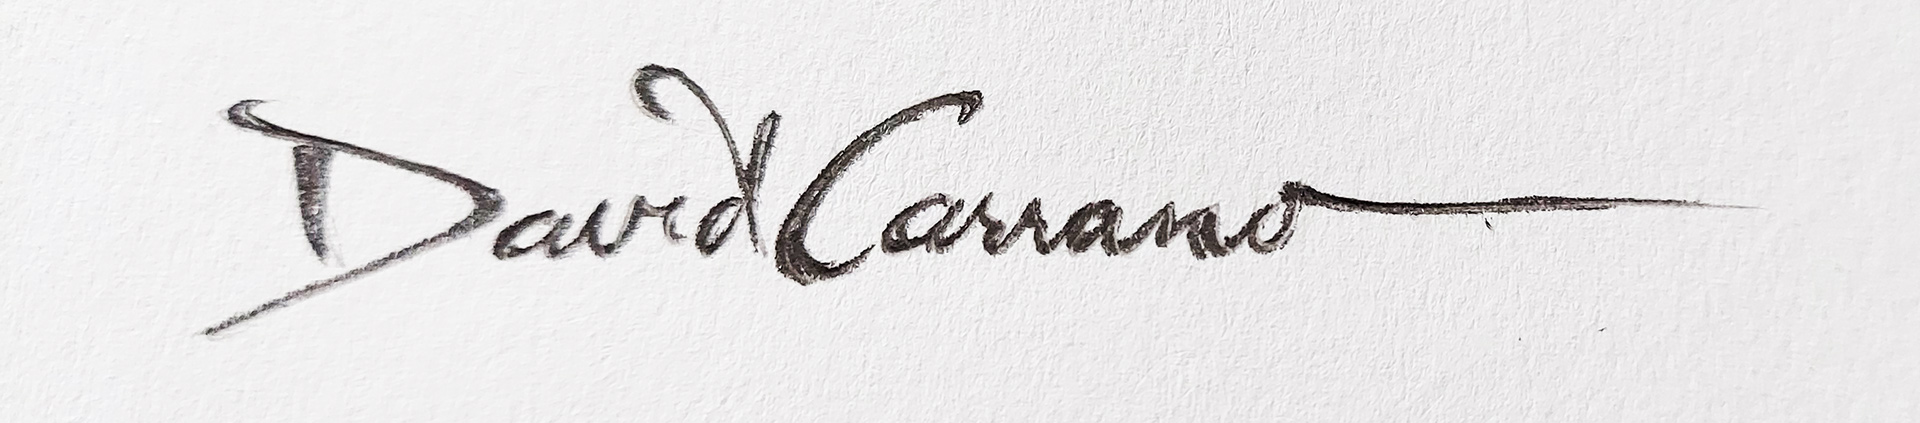 David Carrano